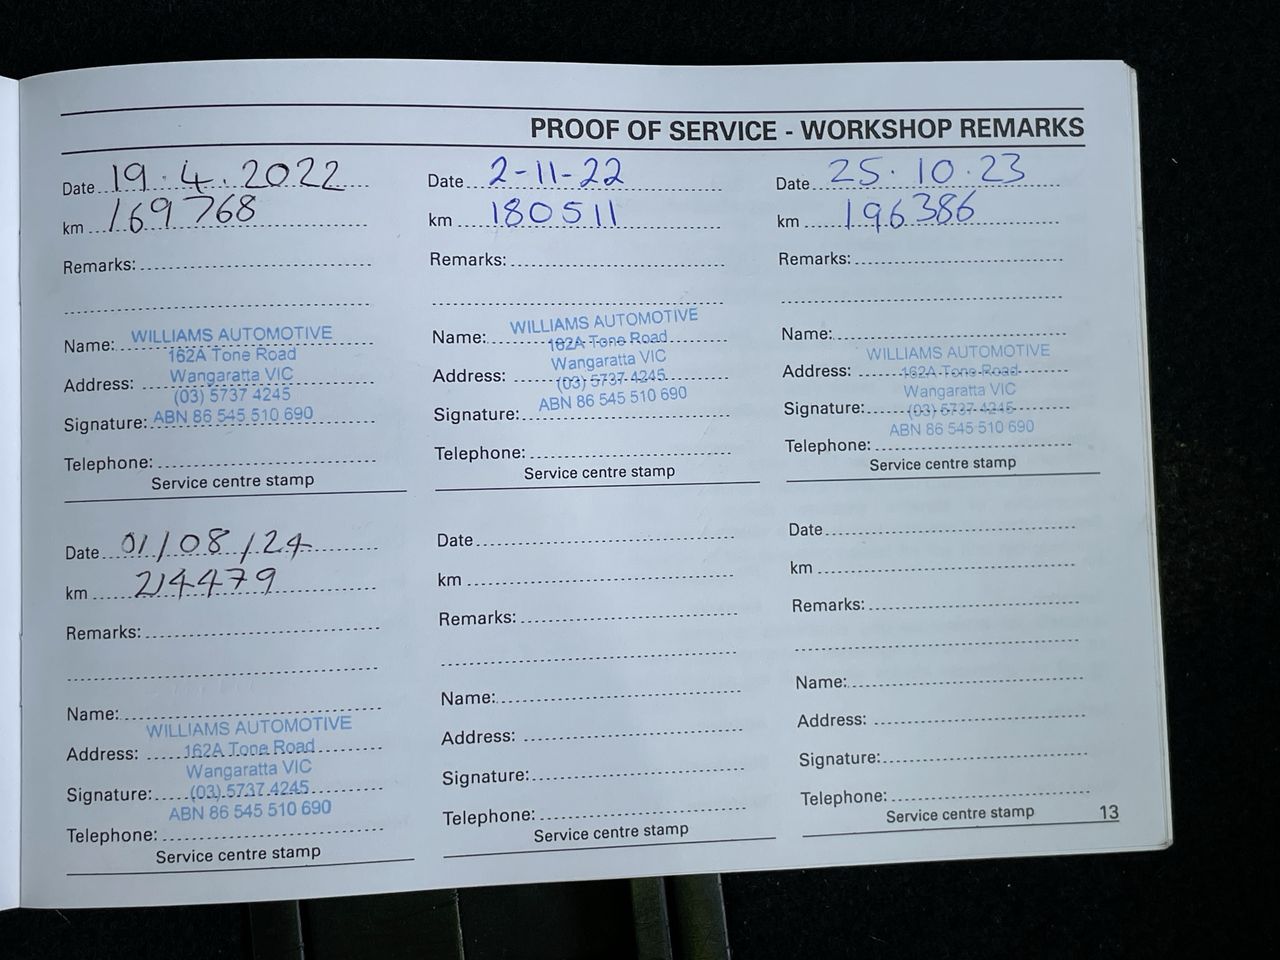 PROOF OF SERVICE - WORKSHOP REMARKS
Date 19.4.2022
km 169768
Remarks:
Name:
Address:
Signature:
WILLIAMS AUTOMOTIVE
162A Tone Road
Wangaratta VIC
(03) 5737 4245
ABN 86 545 510 690
Telephone:
Service centre stamp
Date 2-11-22
km 180511
Remarks:
Name:
Address:
Signature:
WILLIAMS AUTOMOTIVE
162A Tone Road
Wangaratta VIC
(03) 5737 4245
ABN 86 545 510 690
Telephone:
Service centre stamp
Date 25.10.23
km 196386
Remarks:
Name:
Address:
Signature:
WILLIAMS AUTOMOTIVE
162A Tone Road
Wangaratta VIC
(03) 5737 4245
ABN 86 545 510 690
Telephone:
Service centre stamp
Date 01/08/24
km 214479
Remarks:
Name:
Address:
Signature:
WILLIAMS AUTOMOTIVE
162A Tone Road
Wangaratta VIC
(03) 5737 4245
ABN 86 545 510 690
Telephone:
Service centre stamp
Date
km
Remarks:
Name:
Address:
Signature:
Telephone:
Service centre stamp
Date
km
Remarks:
Name:
Address:
Signature:
Telephone:
Service centre stamp
13